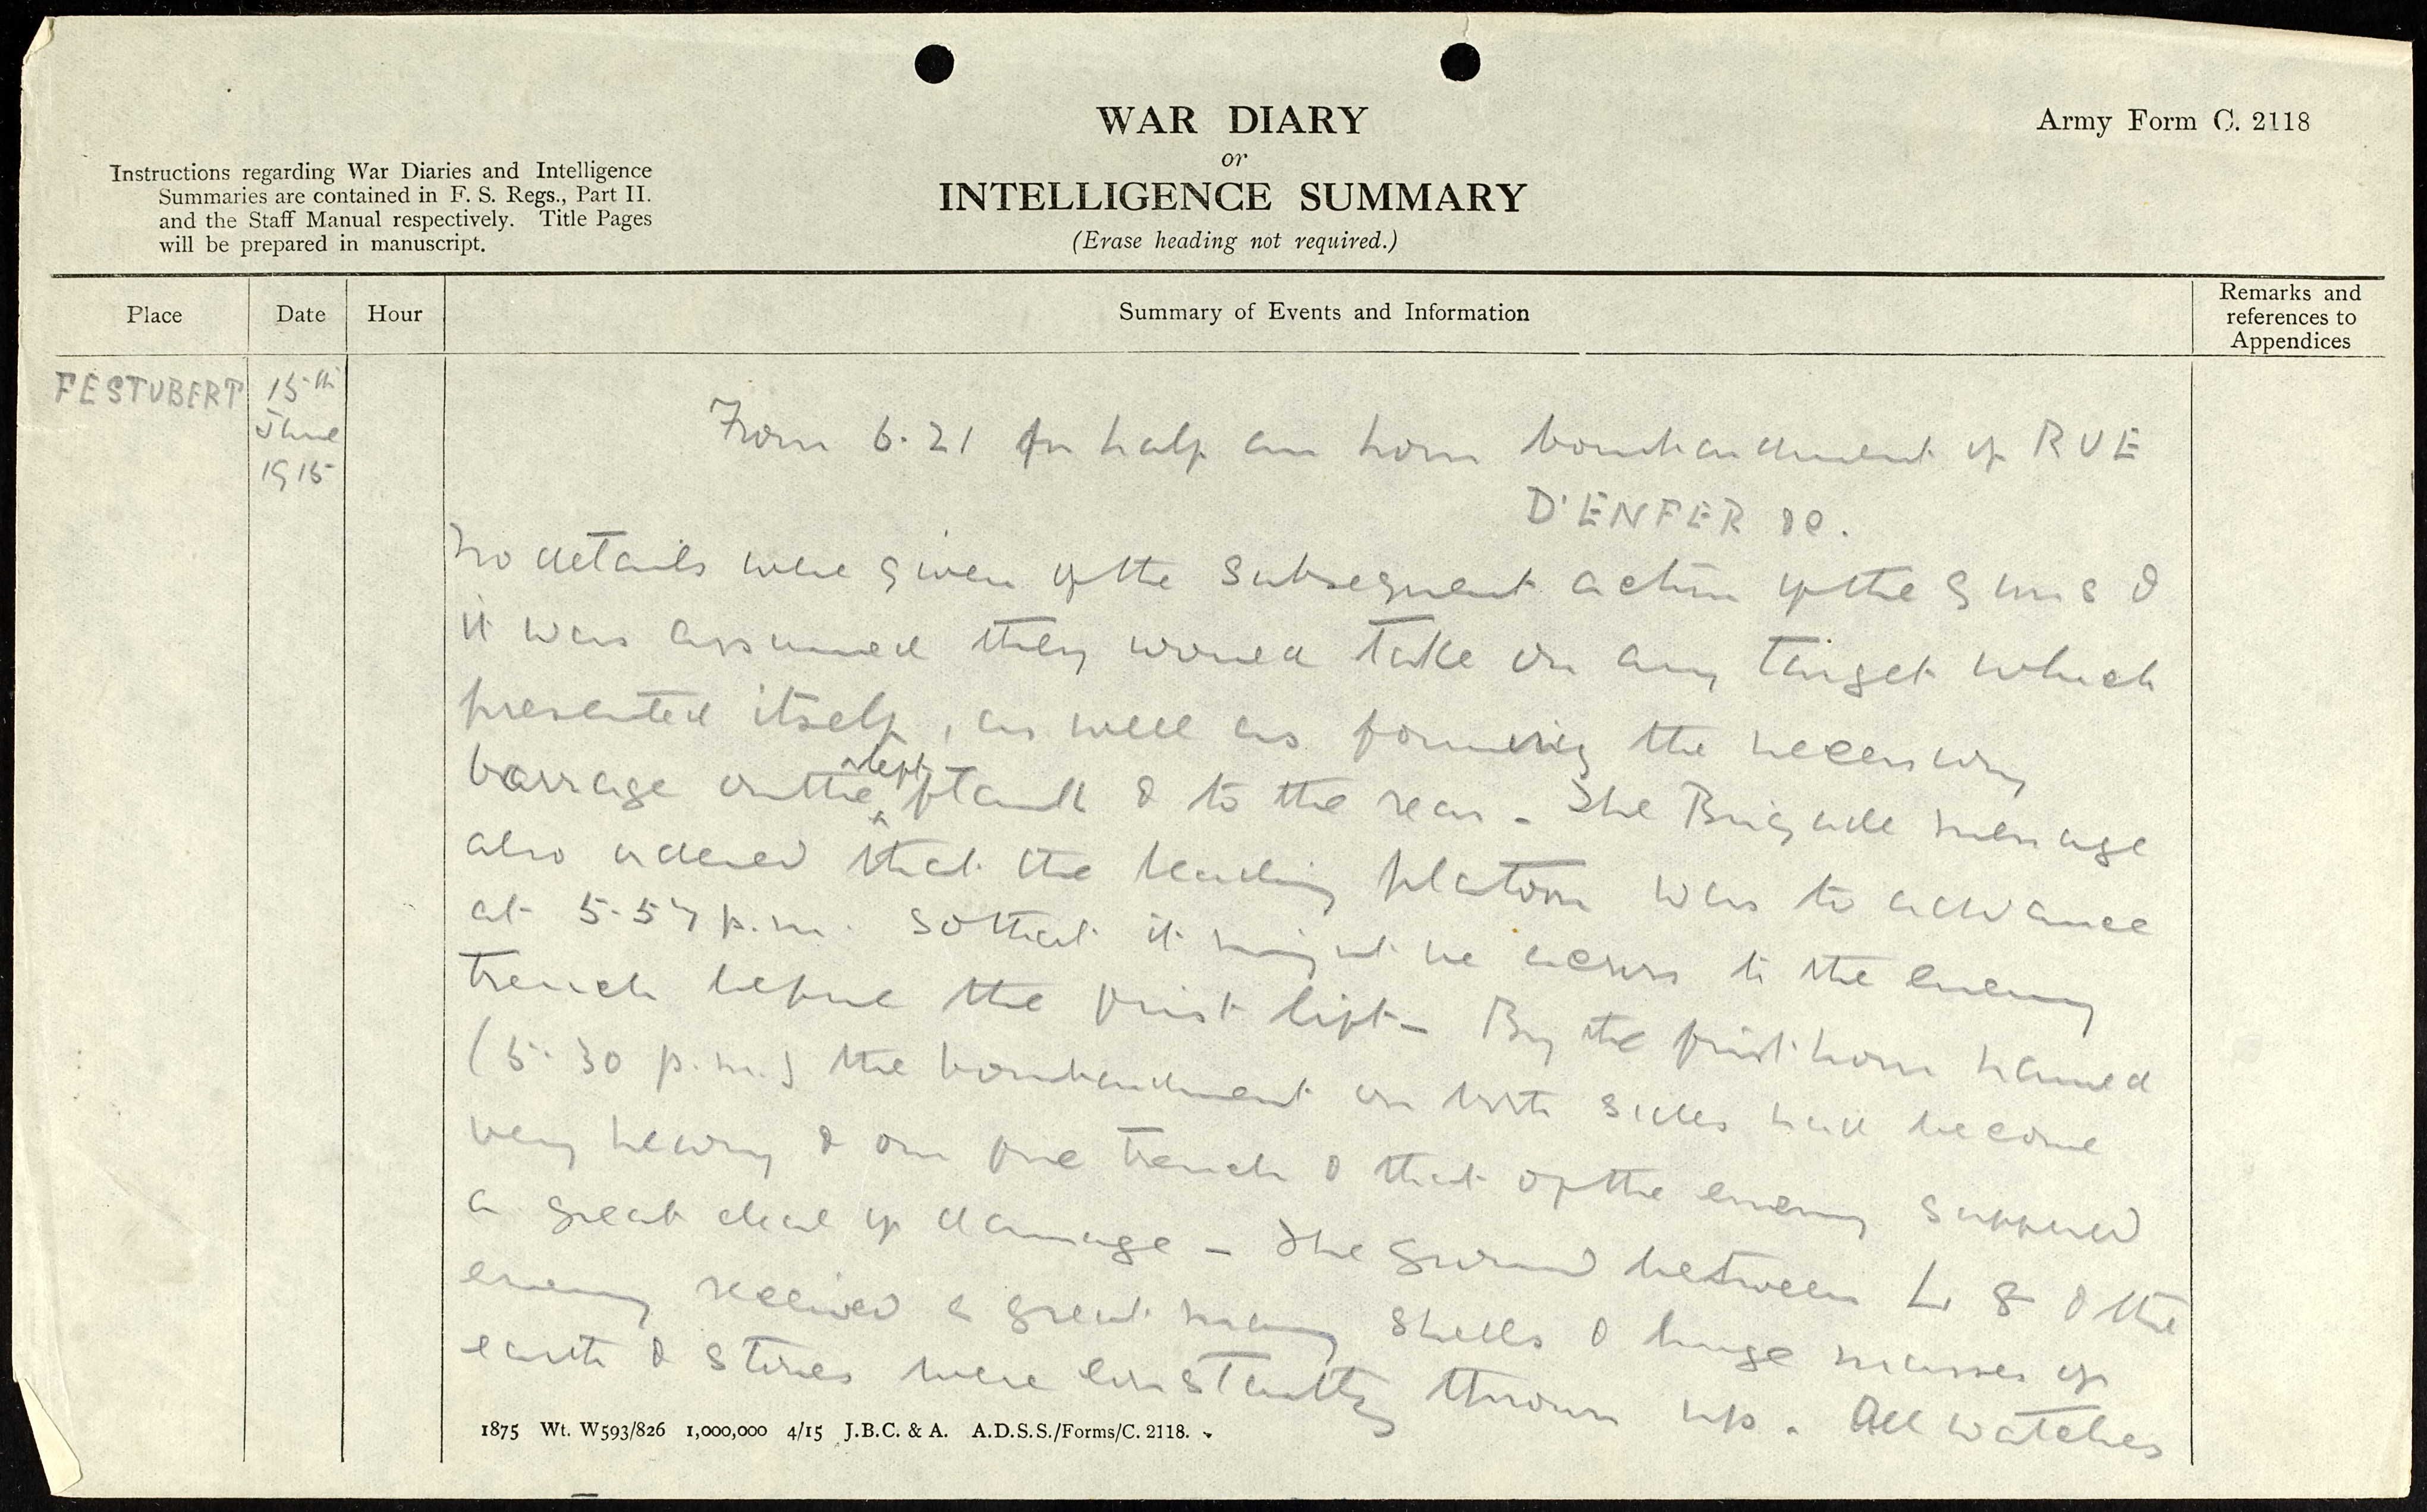 WAR DIARY
or
INTELLIGENCE SUMMARY
(Erase heading not required.)
Army Form C. 2118
Instructions regarding War Diaries and Intelligence
Summaries are contained in F. S. Regs., Part II.
and the Staff Manual respectively. Title Pages
will be prepared in manuscript.
Place
Date
Hour
Summary of Events and Information
Remarks and
references to
Appendices
FESTUBERT
15th
June
1915
From 6.21 for half an hour bombardment of RUE
D'ENFER &c.
No details were given of the subsequent action of the guns &
it was assumed they would take on any target which
presented itself, as well as forming the necessary
barrage on the left flank & to the rear - The Brigade message
also ordered that the leading platoon was to advance
at 5.57 p.m. so that it might be across to the enemy
trench before the first lift - By the first hour named
(5.30 p.m.) the bombardment on both sides had become
very heavy & our fire trench & that of the enemy suffered
a great deal of damage - The ground between L 8 & the
enemy received a great many shells & huge masses of
earth & stones were constantly thrown up. All watches
1875 Wt. W593/826 1,000,000 4/15 J.B.C. & A. A.D.S.S./Forms/C. 2118.